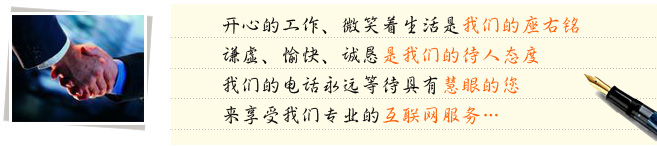 开心的工作、微笑着生活是我们的座右铭
谦虚、愉快、诚恳是我们的待人态度
我们的电话永远等待具有慧眼的您
来享受我们专业的互联网服务…